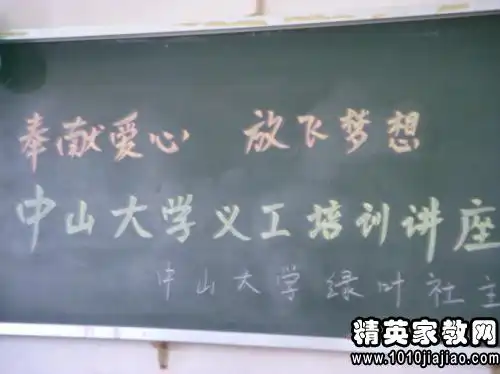 奉献爱心 放飞梦想
中山大学义工培训讲座
中山大学绿叶社主
精英家教网
www.1010jiajiao.com